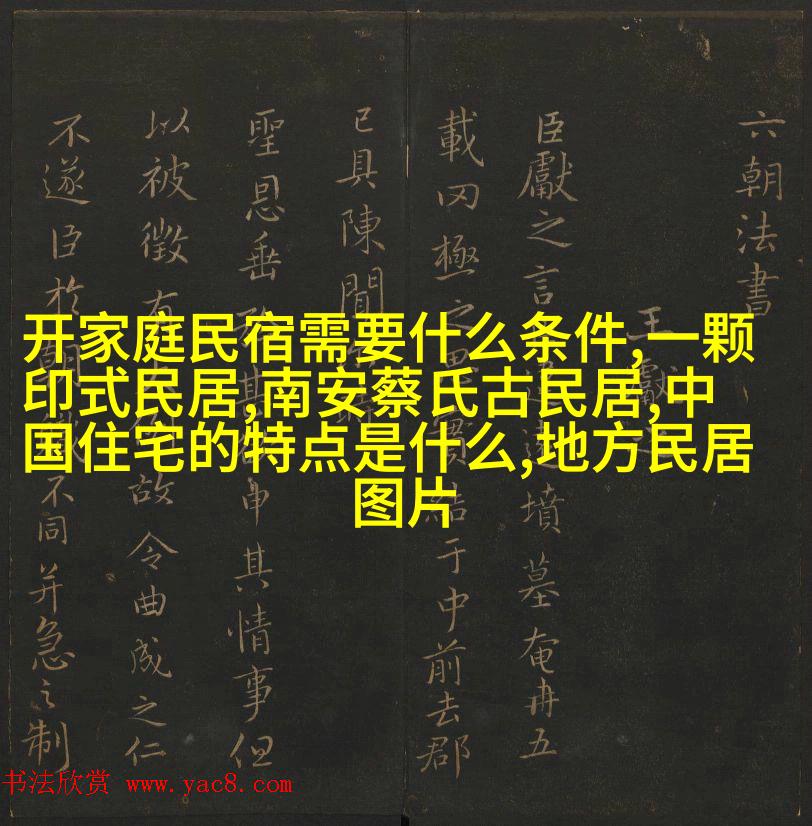 开家庭民宿需要什么条件,一颗
印式民居,南安蔡氏古民居,中
国住宅的特点是什么,地方民居
图片
六朝法書
王獻
臣獻之言 墳墓奄冉五
載罔極之 結于中前去郡
已具陳聞
聖恩垂 申其情事但
以被徵有 故令曲成之仁
不遂臣於 不同并急之制
书法欣赏 www.yac8.com